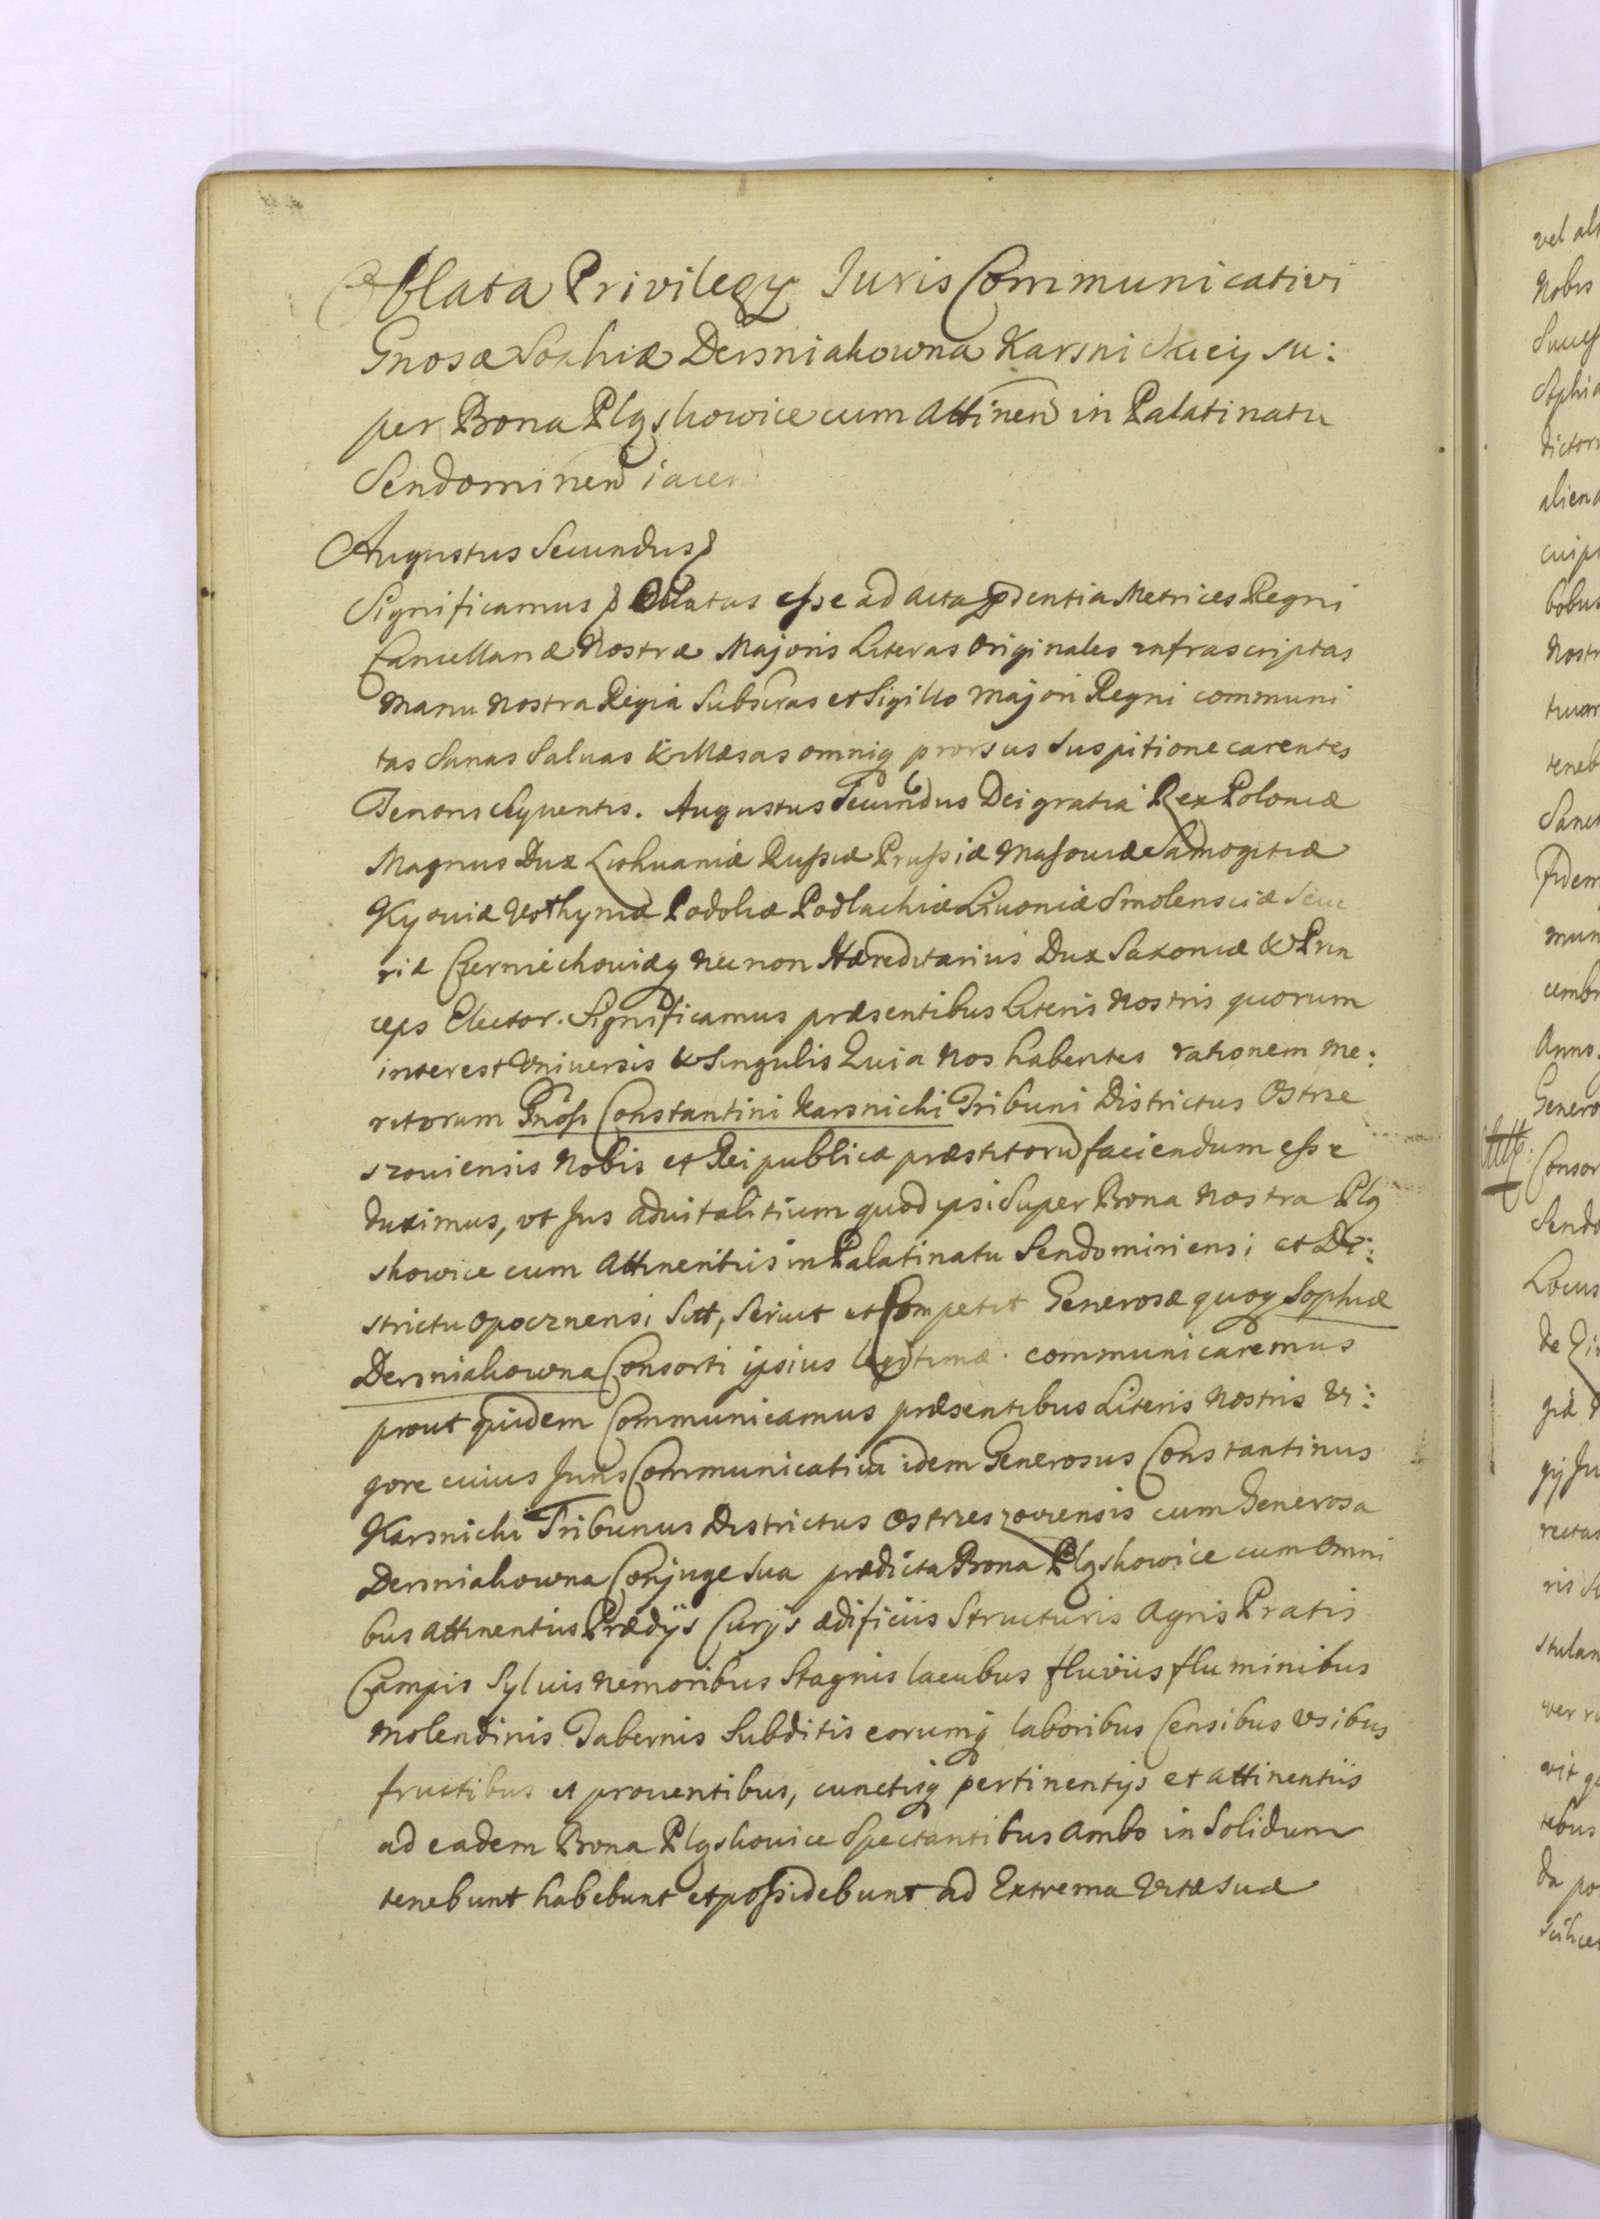 Oblata Privilegy Iuris Communicativi
Gnosæ Sophiæ Dersniakowna Karsnickiey su:
per Bona Plgskowice cum Attinen in Palatinatu
Sendominen iacen
Augustus Secundus
Significamus Oblatas esse ad acta pdentia Metrices Regni
Cancellariæ Nostræ Majoris Literas Originales infrascriptas
Manu Nostra Regia Subscras et Sigillo Majori Regni communi
tas Sanas Saluas & illæsas omniq prorsus suspitione carentes
Tenoris seqventis. Augustus Secundus Dei gratia Rex Poloniæ
Magnus Dux Lithuaniæ Russiæ Prussiæ Masouiæ Samogitiæ
Kyouiæ Volhyniæ Podoliæ Podlachiæ Liuoniæ Smolensciæ Seue
riæ Czerniechouiæq necnon Hæreditarius Dux Saxoniæ & Prin
ceps Elector. Significamus præsentibus Literis Nostris quorum
interest Vniuersis & Singulis Quia Nos habentes rationem me:
ritorum Gnosi Constantini Karsnicki Tribuni Districtus Ostrze
szouiensis Nobis et Reipublicæ præstitoru faciendum esse
duximus, vt Jus aduitalitium quod ipsi Super Bona Nostra Plg
skowice cum Attinentiis in Palatinatu Sendomiriensi et Di:
strictu Opocznensi Sitt, Seruit et Competit Generosæ quoq Sophiæ
Dersniakowna Consorti ipsius legitimæ communicaremus
prout quidem Communicamus præsentibus Literis Nostris Vi:
gore cuius Juris Communicatiui idem Generosus Constantinus
Karsnicki Tribunus Districtus Ostrzeszouiensis cum Generosa
Dersniakowna Conjuge Sua prædicta Bona Plgskowice cum Omni
bus attinentiis Prædijs Curijs ædificiis Structuris Agris Pratis
Campis Syluis Nemoribus Stagnis lacubus fluviis fluminibus
Molendinis Tabernis Subditis eorumq laboribus Censibus vsibus
fructibus et prouentibus, cunctisq pertinentijs et attinentiis
ad eadem Bona Plgskouice Spectantibus Ambo in Solidum
tenebunt habebunt et possidebunt ad Extrema Vitæ suæ